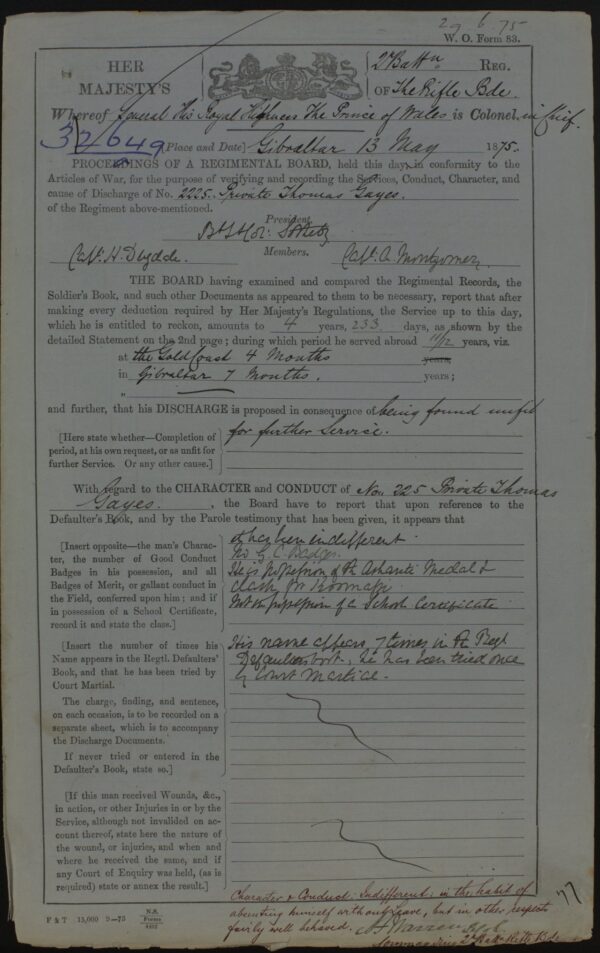 29 6 75
W. O. Form 83.
HER MAJESTY'S
2d Battn REG.
OF The Rifle Bde.
Whereof General His Royal Highness The Prince of Wales is Colonel in Chief.
32649
(Place and Date) Gibraltar 13 May 1875.
PROCEEDINGS OF A REGIMENTAL BOARD, held this day, in conformity to the
Articles of War, for the purpose of verifying and recording the Services, Conduct, Character, and
cause of Discharge of No. 2225 Private Thomas Gayes.
of the Regiment above-mentioned.
President.
Members.
Capt. A. Montgomery
THE BOARD having examined and compared the Regimental Records, the
Soldier's Book, and such other Documents as appeared to them to be necessary, report that after
making every deduction required by Her Majesty's Regulations, the Service up to this day,
which he is entitled to reckon, amounts to 4 years, 233 days, as shown by the
detailed Statement on the 2nd page; during which period he served abroad 11/12 years, viz.
at the Gold Coast 4 Months years;
in Gibraltar 7 Months. years;
"
and further, that his DISCHARGE is proposed in consequence of being found unfit
for further Service.
[Here state whether—Completion of
period, at his own request, or as unfit for
further Service. Or any other cause.]
With regard to the CHARACTER and CONDUCT of No. 2225 Private Thomas
Gayes. , the Board have to report that upon reference to the
Defaulter's Book, and by the Parole testimony that has been given, it appears that
it has been indifferent
No G. C. Badges.
He is in possession of the Ashanti Medal &
clasp for Coomassie
Not in possession of a School Certificate
[Insert opposite—the man's Charac-
ter, the number of Good Conduct
Badges in his possession, and all
Badges of Merit, or gallant conduct in
the Field, conferred upon him; and if
in possession of a School Certificate,
record it and state the class.]
His name appears 7 times in the Regl
Defaulters book, he has been tried once
by Court Martial.
[Insert the number of times his
Name appears in the Regtl. Defaulters'
Book, and that he has been tried by
Court Martial.
The charge, finding, and sentence,
on each occasion, is to be recorded on a
separate sheet, which is to accompany
the Discharge Documents.
If never tried or entered in the
Defaulter's Book, state so.]
[If this man received Wounds, &c.,
in action, or other Injuries in or by the
Service, although not invalided on ac-
count thereof, state here the nature of
the wound, or injuries, and when and
where he received the same, and if
any Court of Enquiry was held, (as is
required) state or annex the result.]
Character & Conduct: Indifferent: in the habit of
absenting himself without leave, but in other respects
fairly well behaved. Warren
Commanding 2d Batt. Rifle Bde
77
F & T 15,000 9—73 N.S. Forms